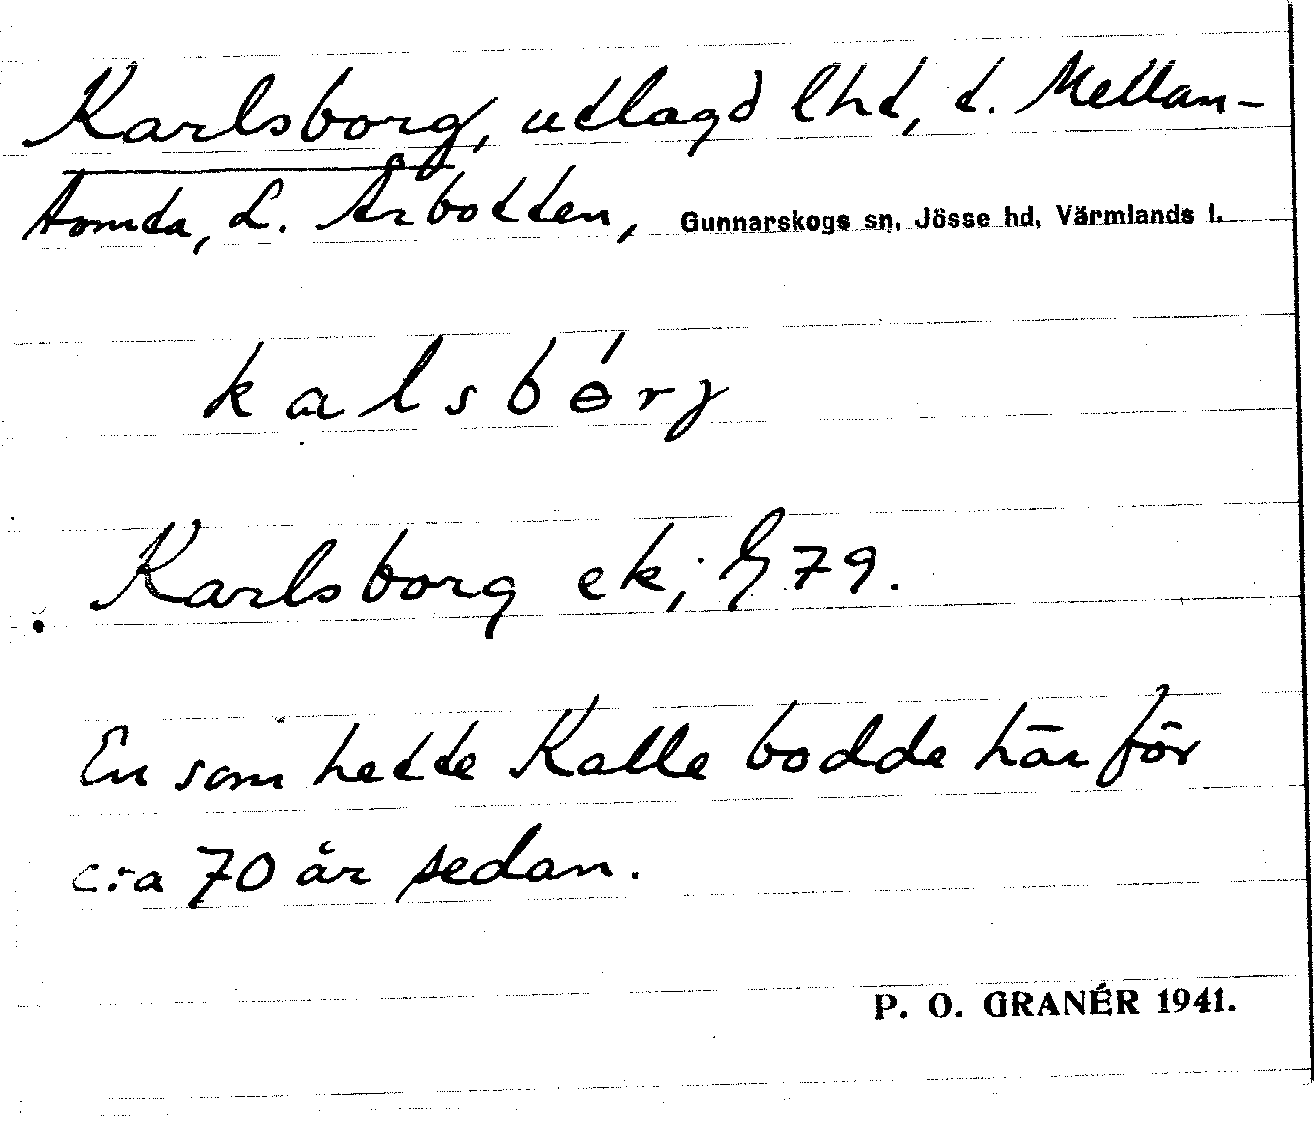 Karlsborg, utlagd lht, t. Mellan-
tomta, L. Årbotten, Gunnarskogs sn, Jösse hd, Värmlands l.
kalsbórj
Karlsborg ek; 79.
En som hette Kalle bodde här för
c:a 70 år sedan.
P. O. GRANÉR 1941.